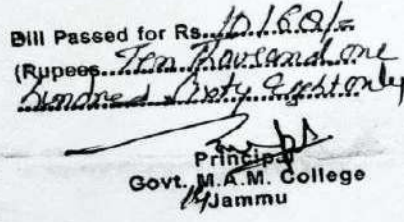 Bill Passed for Rs. 10168/=
(Rupees Ten Thousand one
hundred Sixty Eight only
Principal
Govt. M.A.M. College
Jammu